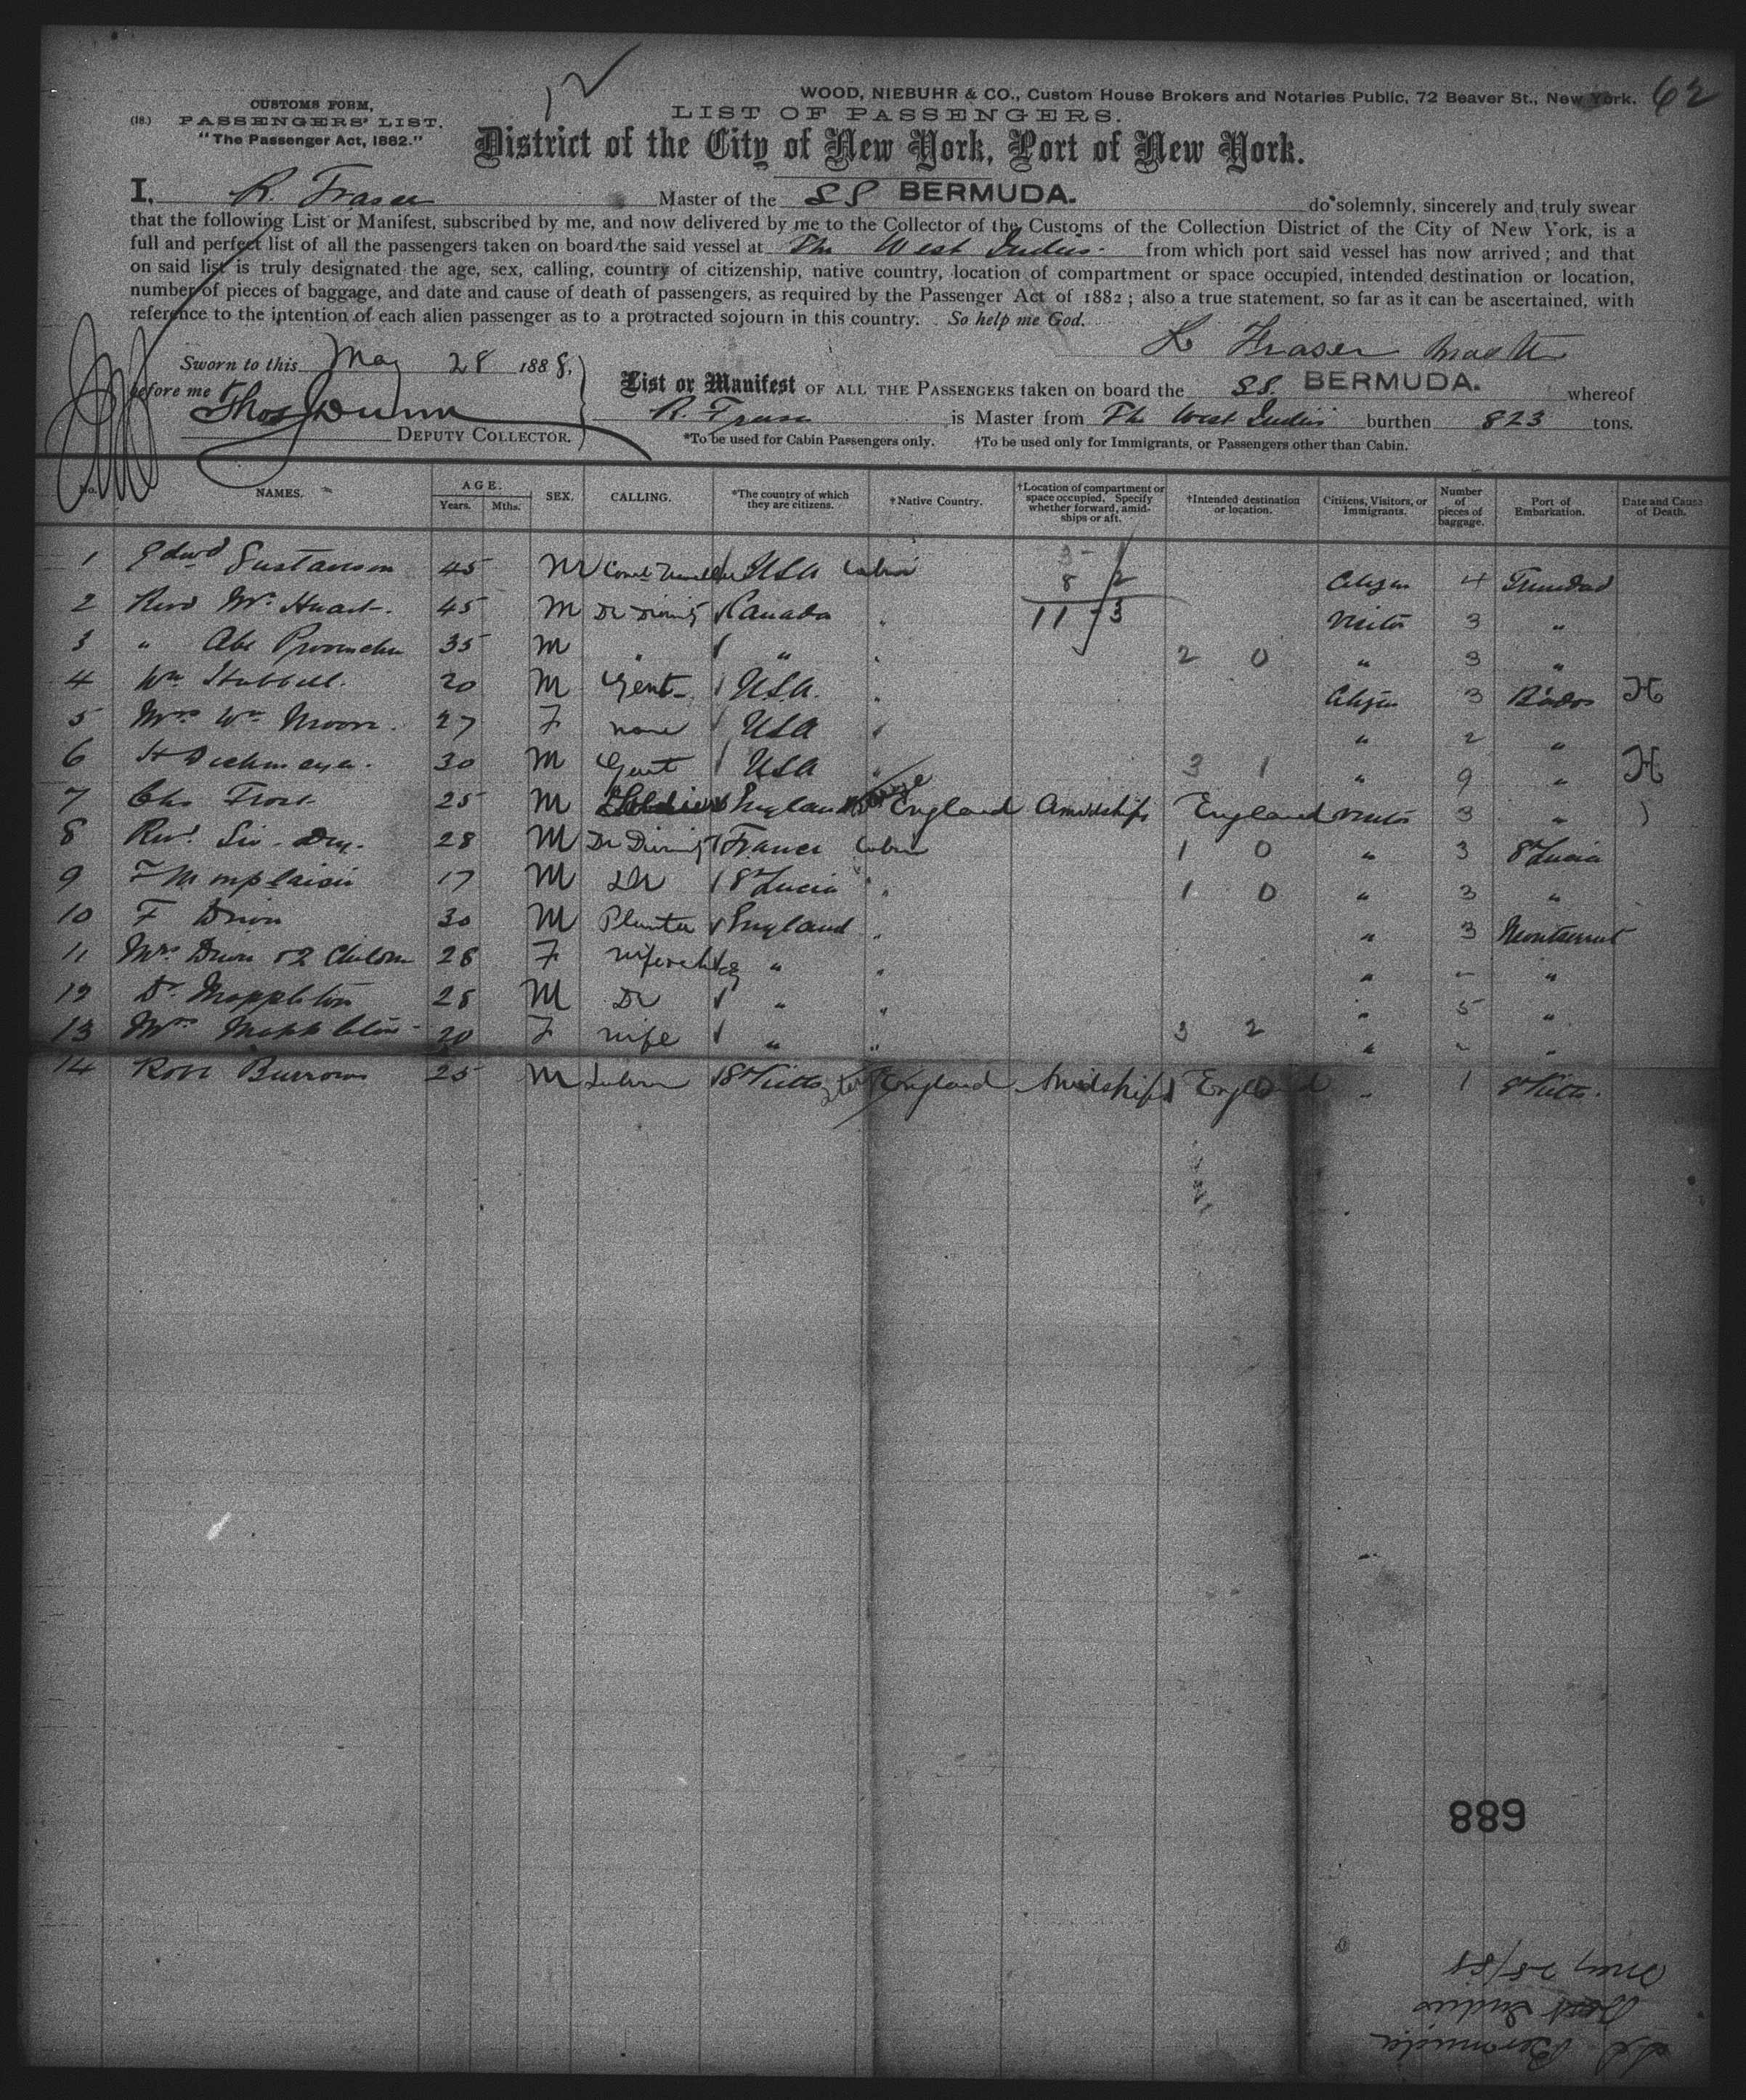 62
WOOD, NIEBUHR & CO., Custom House Brokers and Notaries Public, 72 Beaver St., New York.
CUSTOMS FORM,
(18.) PASSENGERS' LIST,
"The Passenger Act, 1882."
LIST OF PASSENGERS.
District of the City of New York, Port of New York.
I, R. Fraser Master of the SS BERMUDA. do solemnly, sincerely and truly swear
that the following List or Manifest, subscribed by me, and now delivered by me to the Collector of the Customs of the Collection District of the City of New York, is a
full and perfect list of all the passengers taken on board the said vessel at The West Indies from which port said vessel has now arrived; and that
on said list is truly designated the age, sex, calling, country of citizenship, native country, location of compartment or space occupied, intended destination or location,
number of pieces of baggage, and date and cause of death of passengers, as required by the Passenger Act of 1882; also a true statement, so far as it can be ascertained, with
reference to the intention of each alien passenger as to a protracted sojourn in this country. So help me God.
R Fraser Master
Sworn to this May 28 1888,
before me
Thos Dunn
DEPUTY COLLECTOR.
List or Manifest OF ALL THE PASSENGERS taken on board the SS. BERMUDA. whereof
R. Fraser is Master from The West Indies burthen 823 tons.
*To be used for Cabin Passengers only. †To be used only for Immigrants, or Passengers other than Cabin.
No. NAMES. AGE. Years. Mths. SEX. CALLING. *The country of which they are citizens. *Native Country. †Location of compartment or space occupied. Specify whether forward, amidships or aft. †Intended destination or location. Citizens, Visitors, or Immigrants. Number of pieces of baggage. Port of Embarkation. Date and Cause of Death.
1 Edwd Gustavson 45 M USA Cabin Citizen 4 Trinidad
8 2
2 Revd 45 M Dr Divinity Canada " 11 3 Visitor 3 "
3 " Abe 35 M " " " 2 0 " 3 "
4 Wm 20 M Gent USA. " Citizen 3 B'dos H
5 Mrs Wm Moore 27 F none USA " " 2 "
6 H 30 M Gent USA " 3 1 " 9 " H
7 Chs Frost 25 M England England Amidships England Visitor 3 "
8 Revd 28 M Dr Divinity France Cabin 1 0 " 3 St Lucia
9 F Monplaisir 17 M St Lucia " 1 0 " 3 "
10 F 30 M Planter England " " 3 Montserrat
11 Mrs & 2 Children 28 F " " " "
12 Dr Mappleton 28 M Dr " " " 5 "
13 Mrs Mappleton 20 F wife " " 3 2 " "
14 Robt Burrows 25 M St Kitts England Amidships England " 1 St Kitts.
889
SS Bermuda
West Indies
May 28/88